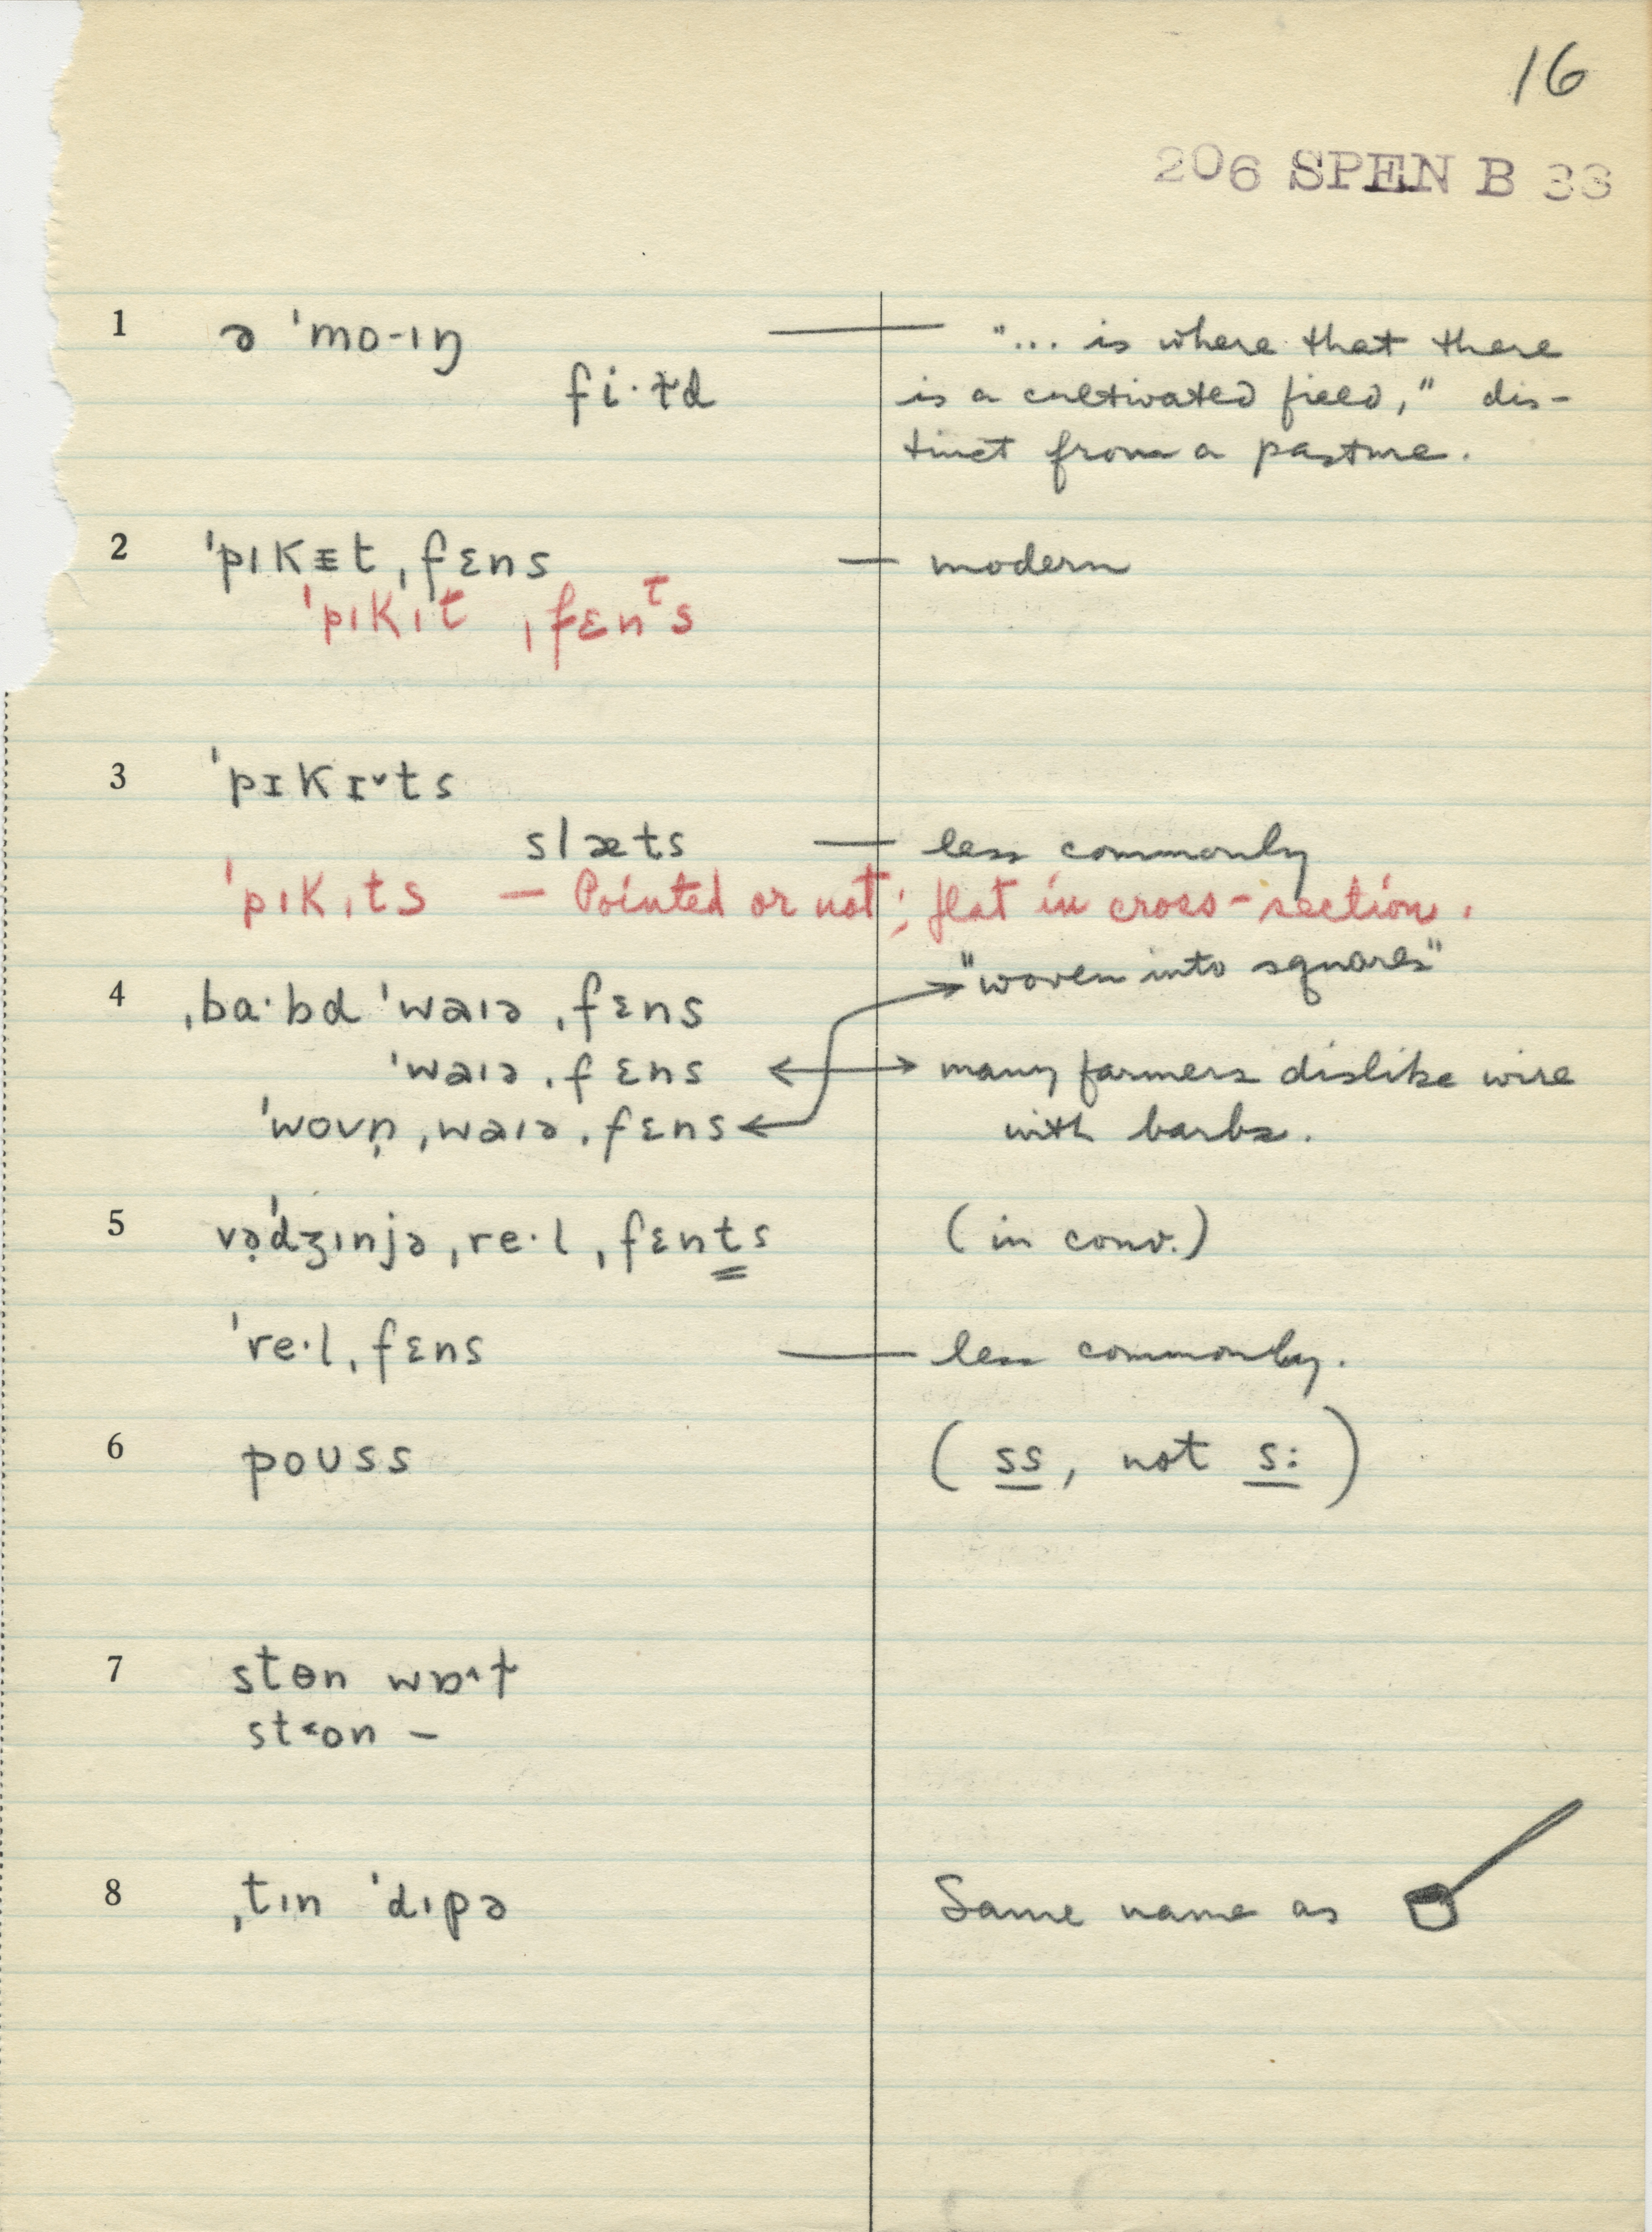 16
206 SPEN B 33
1 ə ˈmo-ɪŋ — "... is where that there
fi·ɫd is a cultivated field," dis-
tinct from a pasture.
2 ˈpɪkᵻt ˌfɛns — modern
ˈpɪkɪt ˌfɛnᵗs
3 ˈpɪkɪ˅ts
slæts — less commonly
ˈpɪkɪts — Pointed or not; flat in cross-section.
"woven into squares"
4 ˌba·bd ˈwaɪə ˌfɛns
ˈwaɪə ˌfɛns ↔ many farmers dislike wire
ˈwovn̩ ˌwaɪə ˌfɛns with barbs.
5 və̣ˈdʒɪnjə ˌre·l ˌfɛnts (in conv.)
ˈre·l ˌfɛns — less commonly.
6 poʊss (ss, not s:)
7 stɵn wɒ˄ɫ
st˂on –
8 ˌtɪn ˈdɪpə Same name as